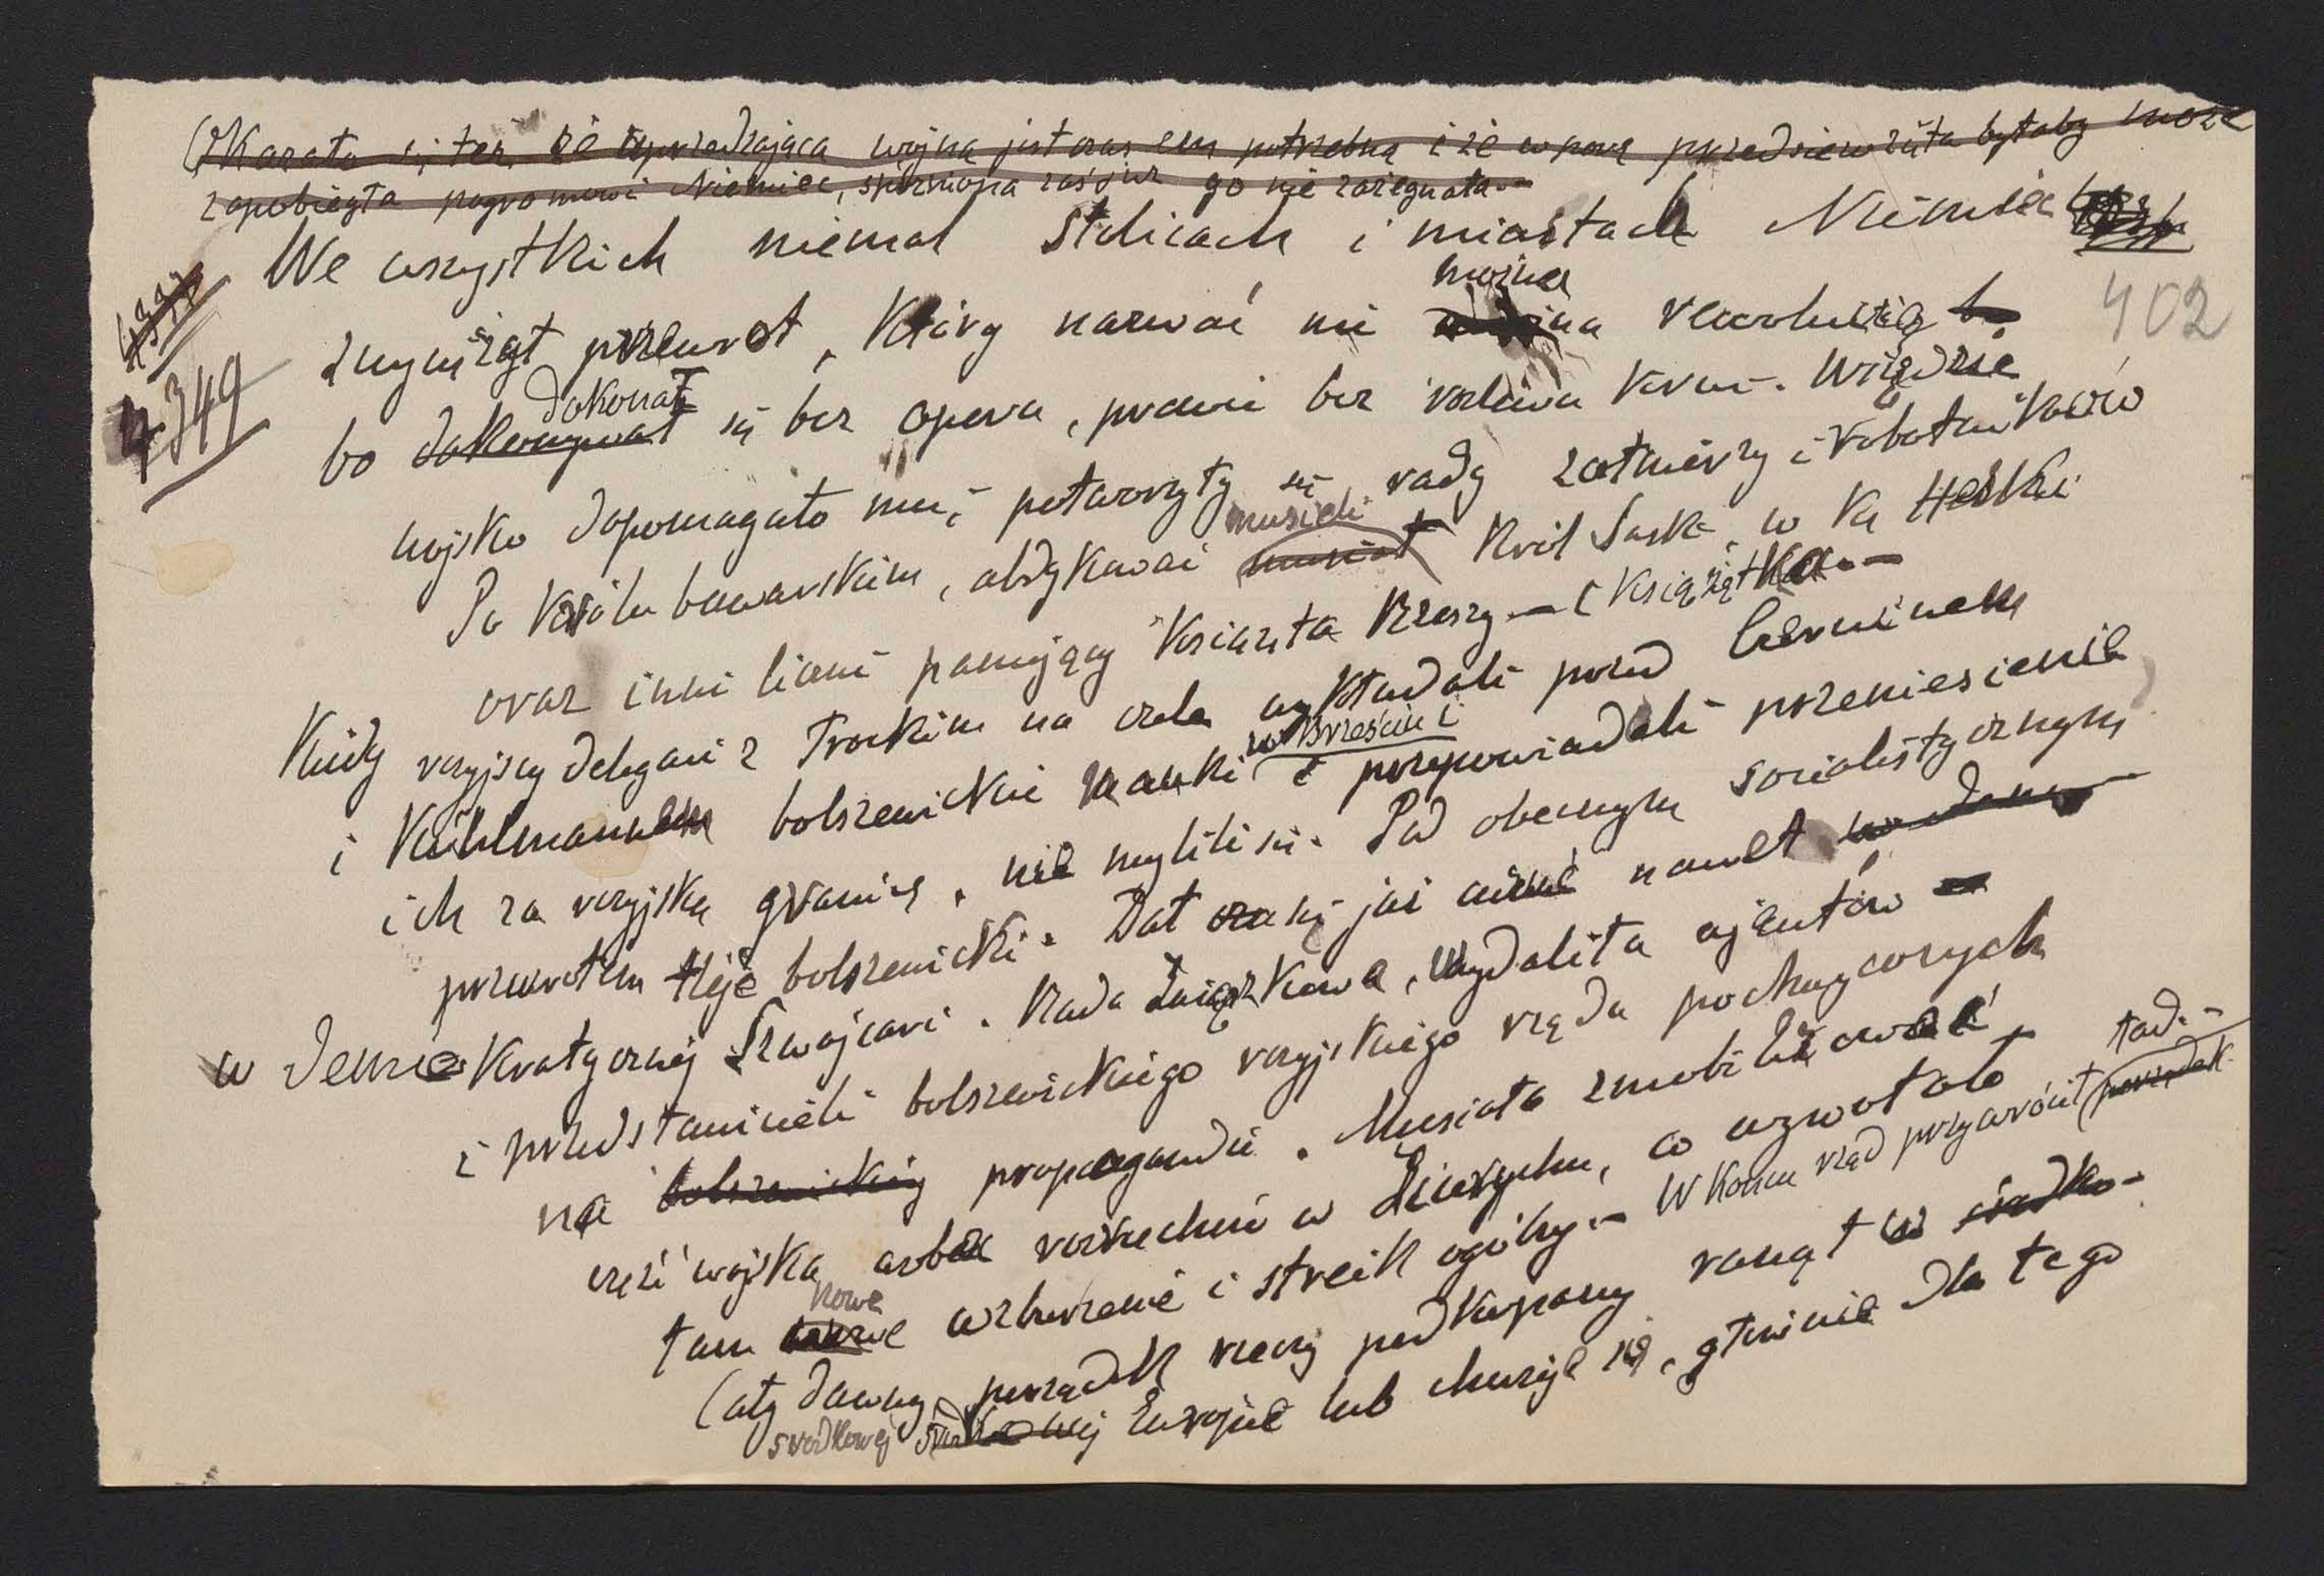 Okazało się też, że uprzedzająca wojna jest czasem potrzebną i że w porę przedsięwzięta byłaby może
zapobiegła pogromowi Niemiec, spóźniona zaś już go nie zażegnała.-
We wszystkich niemal stolicach i miastach Niemiec
402
można
zwyciężył przewrot, który nazwać nie można rewolucją
4349
dokonał
bo dokonywał się bez oporu, prawie bez rozlewu krwi. Wszędzie
wojsko dopomagało mu i potworzyły się rady żołnierzy i robotników
musieli
Po królu bawarskim, abdykować musiał Król Sask. W Ks Heski
oraz inni liczni panujący Książęta Rzeszy - (książątka.-
Kiedy rosyjscy delegaci z Trockim na czele wykładali przed Czerninem
w Brześciu i
i Kühlmannem bolszewickie nauki i przepowiadali przeniesienie
ich za rosyjską granicę, nie mylili się. Pod obecnym socialistycznym
przewrotem tleje bolszewicki. Dał znać się jaż nawet
w demokratycznej Szwajcarii. Rada Związkowa, wydaliła ajentów
i przedstawicieli bolszewickiego rosyjskiego rządu pochwyconych
na bolszewickiej propagandzie. Musiała zmobilizować
część wojska wobec rozruchów w Zürychu, co wywołało
tad.-
nowe
tam wzburzenie i streik ogólny.- W końcu rząd przywrócił porządek
Cały dawny porządek rzeczy podkopany runął w środko-
środkowej środkowej Europie lub chwieje się, głównie dla tego